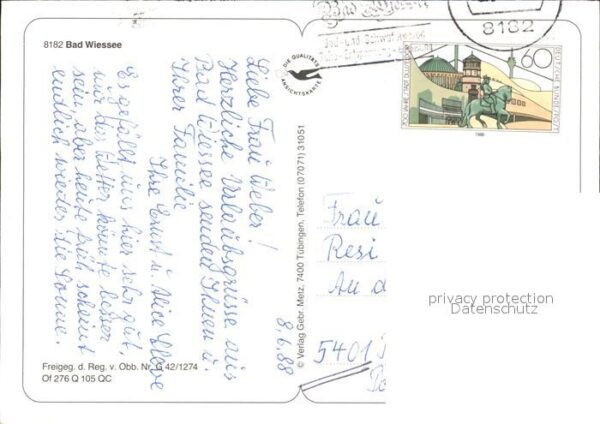 8182 Bad Wiessee
Liebe Frau Weber!
Herzliche Urlaubsgrüsse aus
Bad Wiessee senden Ihnen u.
Ihrer Familie
Ihre Ernst u. Alice
Es gefällt uns hier sehr gut,
nur das Wetter könnte besser
sein, aber heute früh scheint
endlich wieder die Sonne.
8.6.88
Freigeg. d. Reg. v. Obb. Nr. G 42/1274
Of 276 Q 105 QC
DIE QUALITÄTS
ANSICHTSKARTE
© Verlag Gebr. Metz, 7400 Tübingen, Telefon (07071) 31051
Bad
8182
60
DEUTSCHE BUNDESPOST
700 JAHRE STADT DÜSSELDORF
1988
Frau
Resi
An d
5401
privacy protection
Datenschutz